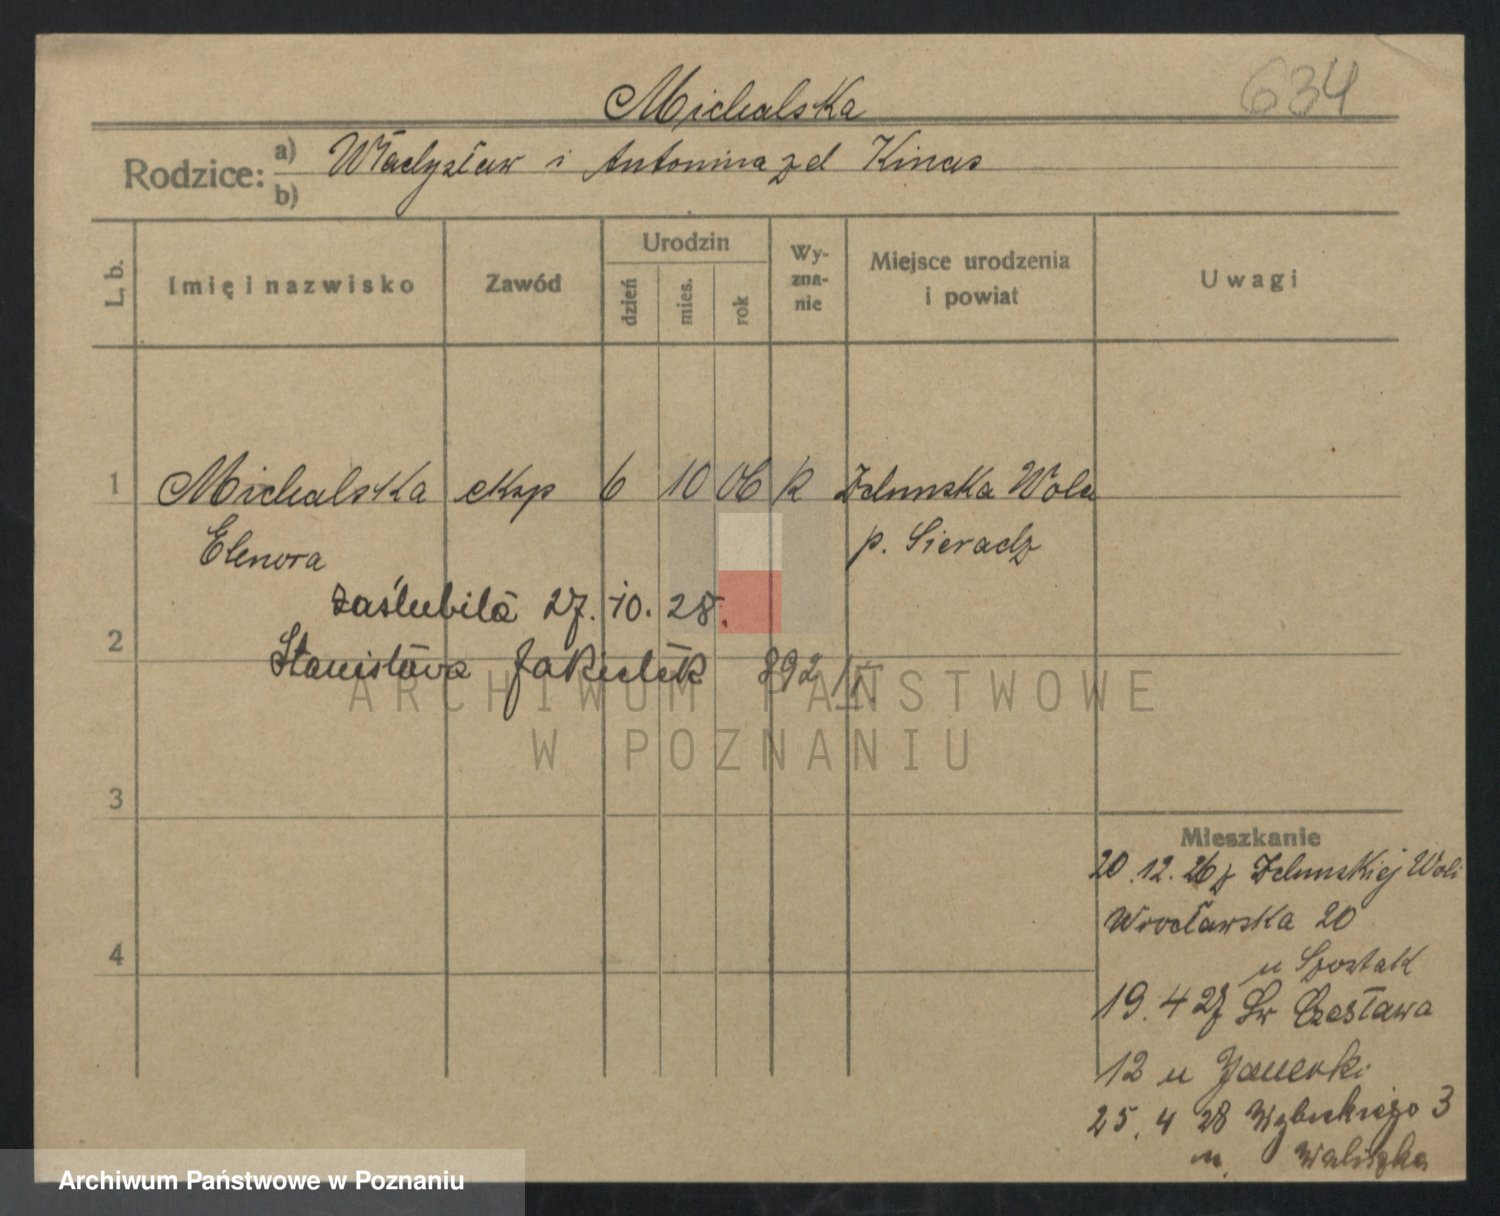 634
Michalska
Rodzice: a) Władysław i Antonina zd Kinas
b)
L. b. Imię i nazwisko Zawód Urodzin dzień mies. rok Wy-zna-nie Miejsce urodzenia i powiat Uwagi
1 Michalska eksp 6 10 06 k Zdunska Wola
Elenora p. Sieradz
zaślubiła 27. 10. 28.
2
Stanisława Jakielek 892/II.
ARCHIWUM PAŃSTWOWE
W POZNANIU
3
Mieszkanie
20.12.26 z Zdunskiej Woli
Wrocławska 20
4
u Szostak
19.4 27 Św Czesława
12 u
25.4 28 Wybickiego 3
u.
Archiwum Państwowe w Poznaniu